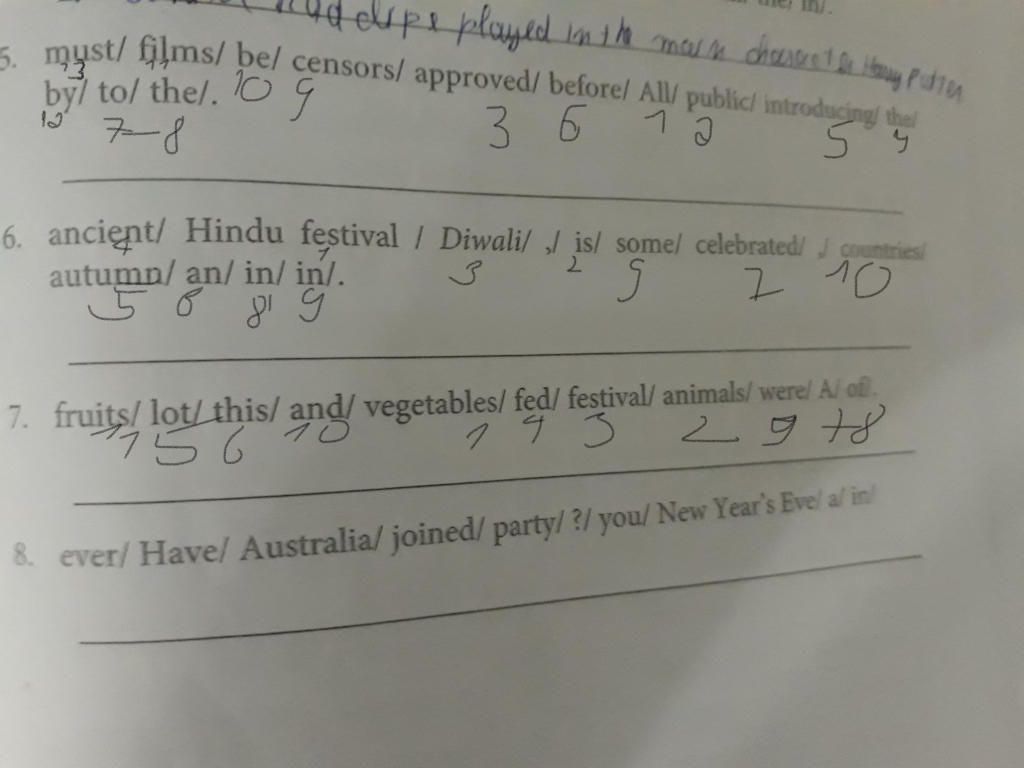 played in the main
5. must/ films/ be/ censors/ approved/ before/ All/ public/ introducing/ the/
by/ to/ the/. 10 9
13 11
12 7-8 3 6 1 2 5 4
6. ancient/ Hindu festival / Diwali/ ,/ is/ some/ celebrated/ ,/ countries/
autumn/ an/ in/ in/.
5 6 8 9 3 2 10
7. fruits/ lot/ this/ and/ vegetables/ fed/ festival/ animals/ were/ A/ of/.
11 5 6 10 1 4 3 2 9 +8
8. ever/ Have/ Australia/ joined/ party/ ?/ you/ New Year's Eve/ a/ in/